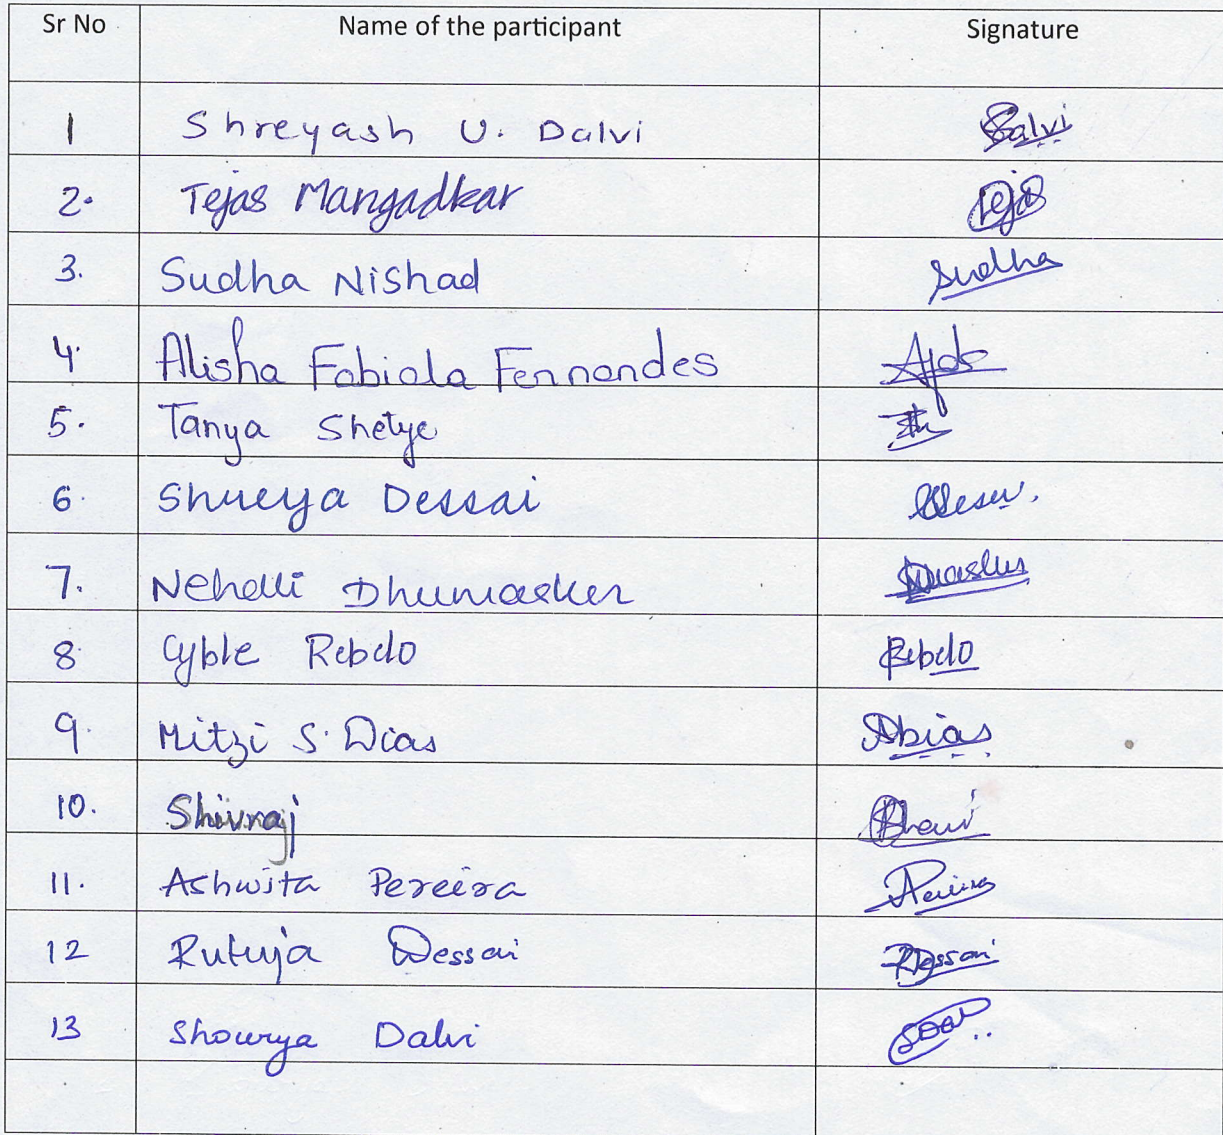 Sr No Name of the participant Signature
1 Shreyash U. Dalvi Dalvi
2. Tejas Mangadkar Tejas
3. Sudha Nishad Sudha
4. Alisha Fabiola Fernandes
5. Tanya Shetye
6. Shreya Dessai
7. Nehalli Dhumasker
8. Cyble Rebelo Rebelo
9. Mitzi S. Dias
10. Shivraj
11. Ashwita Pereira
12 Rutuja Dessai RDessai
13 Shourya Dalvi